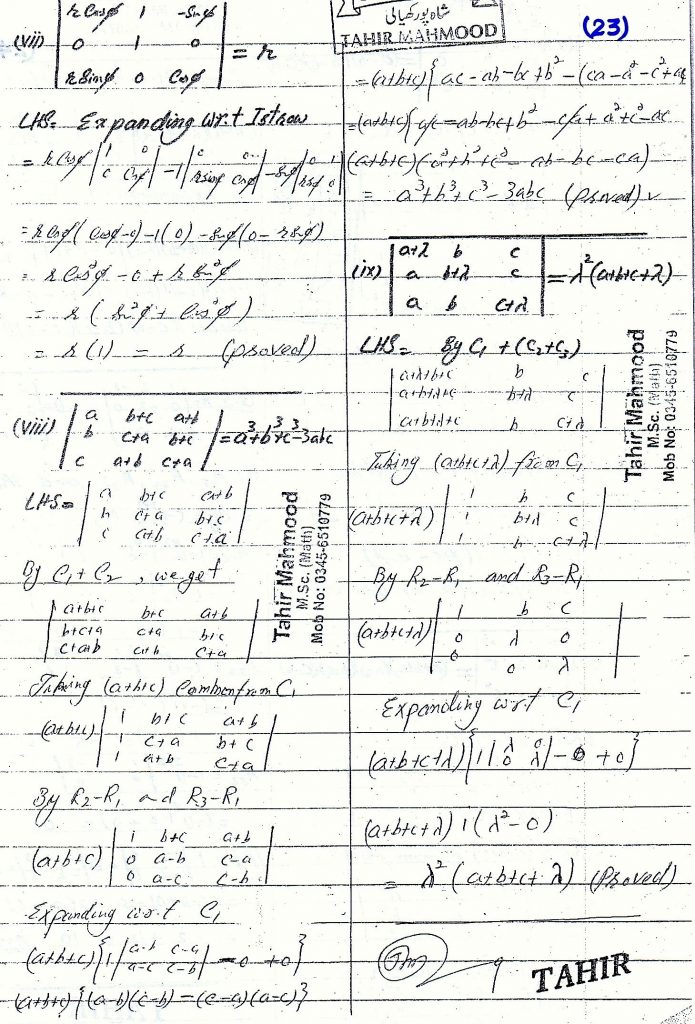 (vii) | r Cosφ 1 -Sinφ |
| 0 1 0 | = r
| r Sinφ 0 Cosφ |
LHS= Expanding w.r.t 1st row
= r Cosφ | 1 0 | -1 | 0 0 | - Sinφ | 0 1 |
= r Cosφ( Cosφ-0) -1(0) - Sinφ(0- r Sinφ)
= r Cos²φ - 0 + r Sin²φ
= r ( Sin²φ + Cos²φ )
= r (1) = r (proved)
(viii) | a b+c a+b |
| b c+a b+c | = a³+b³+c³-3abc
| c a+b c+a |
LHS= | a b+c a+b |
| b c+a b+c |
| c a+b c+a |
By C₁ + C₂ , we get
| a+b+c b+c a+b |
| b+c+a c+a b+c |
| c+a+b a+b c+a |
Taking (a+b+c) Common from C₁
(a+b+c) | 1 b+c a+b |
| 1 c+a b+c |
| 1 a+b c+a |
By R₂-R₁ and R₃-R₁
(a+b+c) | 1 b+c a+b |
| 0 a-b c-a |
| 0 a-c c-b |
Expanding w.r.t C₁
(a+b+c) { 1 | a-b c-a | -0 +0 }
| a-c c-b |
(a+b+c) {(a-b)(c-b) - (c-a)(a-c)}
Tahir Mahmood
M.Sc. (Math)
Mob No: 0345-6510779
شاہ پور کھیالی
TAHIR MAHMOOD
(23)
= (a+b+c) { ac - ab - bc + b² - (ca - a² - c² + a
= (a+b+c) { ac - ab - bc + b² - ca + a² + c² - ac
(a+b+c) (a²+b²+c² - ab - bc - ca)
= a³+b³+c³- 3abc (Proved)
(ix) | a+λ b c |
| a b+λ c | = λ²(a+b+c+λ)
| a b c+λ |
LHS= By C₁ + (C₂+C₃)
| a+λ+b+c b c |
| a+b+λ+c b+λ c |
| a+b+λ+c b c+λ |
Taking (a+b+c+λ) from C₁
(a+b+c+λ) | 1 b c |
| 1 b+λ c |
| 1 b c+λ |
By R₂-R₁ and R₃-R₁
(a+b+c+λ) | 1 b c |
| 0 λ 0 |
| 0 0 λ |
Expanding w.r.t C₁
(a+b+c+λ) { 1 | λ 0 | -0 +0 }
| 0 λ |
(a+b+c+λ) 1 (λ²-0)
= λ² (a+b+c+λ) (Proved)
Tahir Mahmood
M.Sc. (Math)
Mob No: 0345-6510779
TAHIR